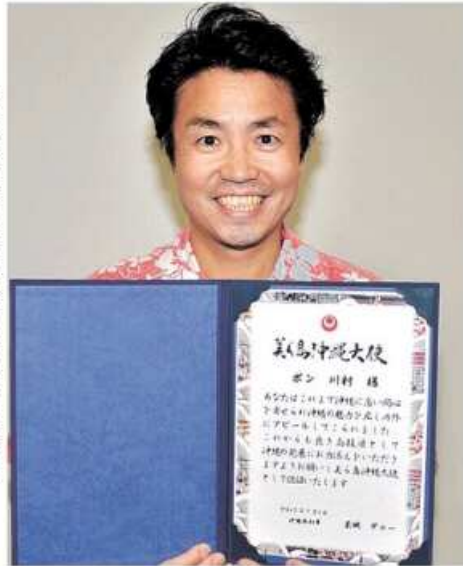 美ら島沖縄大使
ボン 川村 様
あなたはこれまで沖縄に高い関心
を寄せられ沖縄の魅力を広く内外
にアピールしてこられました
これからも良き応援道として
沖縄の発展にお力添えをいただき
ますようお願いし美ら島沖縄大使
として認証いたします